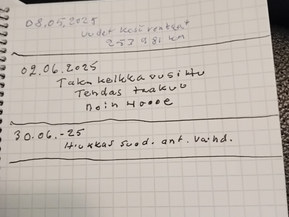 08.05.2025
Uudet kesärenkaat
253981 km
02.06.2025
Taka kelkka uusittu
Tendas takuu
noin 4000e
30.06.-25
Hiukkas suod. ant. vaihd.